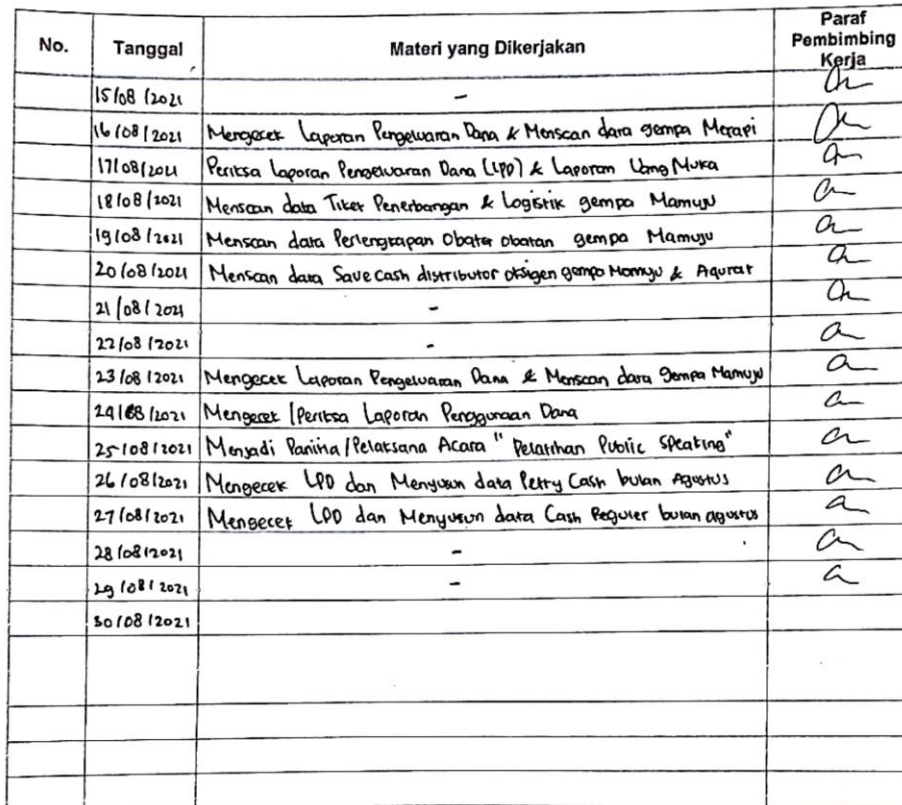 No. Tanggal Materi yang Dikerjakan Paraf Pembimbing Kerja
15/08/2021 -
16/08/2021 Mengecek Laporan Pengeluaran Dana & Menscan data gempa Merapi
17/08/2021 Periksa Laporan Pengeluaran Dana (LPD) & Laporan Uang Muka
18/08/2021 Menscan data Tiket Penerbangan & Logistik gempa Mamuju
19/08/2021 Menscan data Perlengkapan Obater obatan gempa Mamuju
20/08/2021 Menscan data Save cash distributor oksigen gempa Mamuju & Aqurat
21/08/2021 -
22/08/2021 -
23/08/2021 Mengecek Laporan Pengeluaran Dana & Menscan data Gempa Mamuju
24/08/2021 Mengecek/Periksa Laporan Penggunaan Dana
25/08/2021 Menjadi Panitia/Pelaksana Acara "Pelatihan Public Speaking"
26/08/2021 Mengecek LPD dan Menyusun data Petty Cash bulan Agustus
27/08/2021 Mengecek LPD dan Menyusun data Cash Reguler bulan agustus
28/08/2021 -
29/08/2021 -
30/08/2021